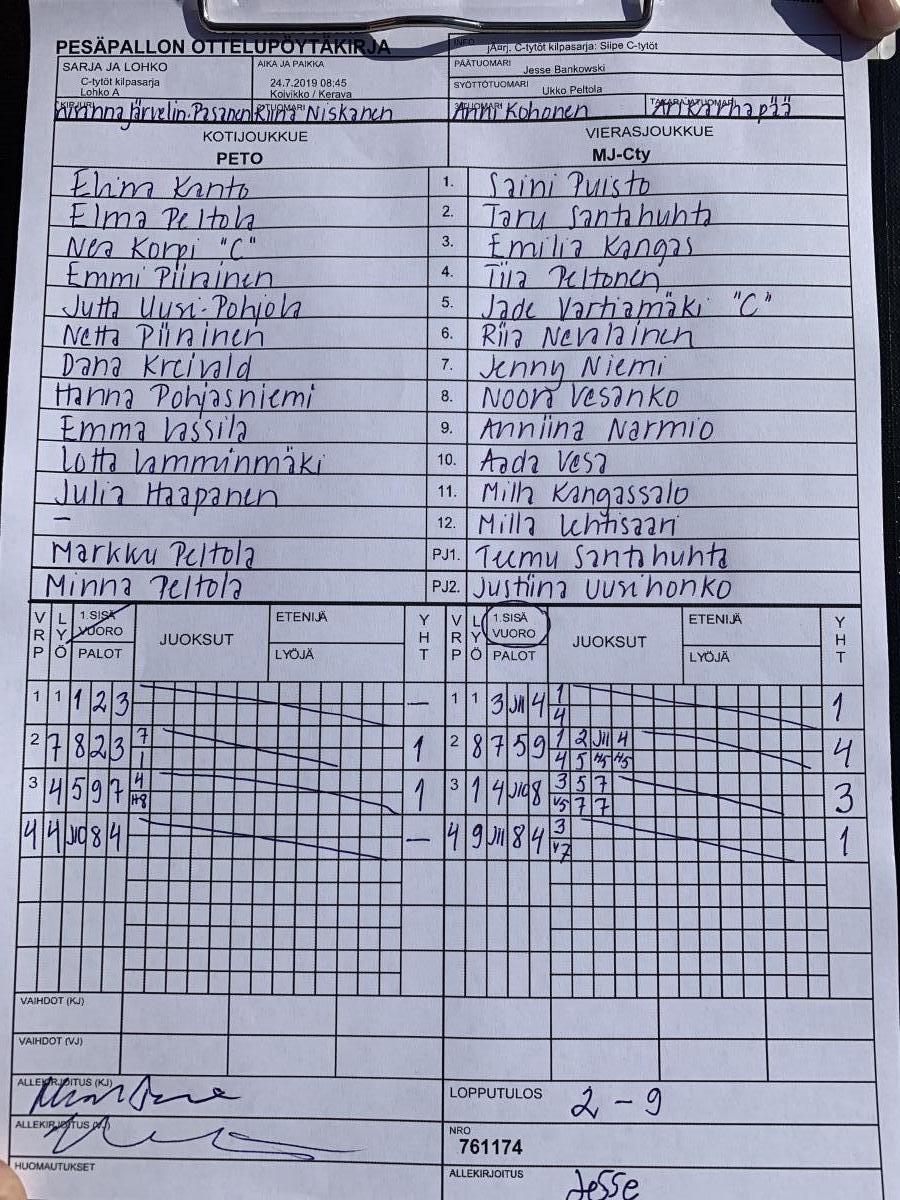 PESÄPALLON OTTELUPÖYTÄKIRJA
INFO
jÄ¤rj. C-tytöt kilpasarja: Siipe C-tytöt
SARJA JA LOHKO
C-tytöt kilpasarja
Lohko A
AIKA JA PAIKKA
24.7.2019 08:45
Koivikko / Kerava
PÄÄTUOMARI
Jesse Bankowski
SYÖTTÖTUOMARI
Ukko Peltola
KIRJURI
Järvelin-Pasanen
Riina Niskanen
Anni Kohonen
KOTIJOUKKUE
PETO
VIERASJOUKKUE
MJ-Cty
Elina Kanto 1. Saini Puisto
Elma Peltola 2. Taru Santahuhta
Nea Korpi "C" 3. Emilia Kangas
Emmi Piirainen 4. Tiia Peltonen
Jutta Uusi-Pohjola 5. Jade Vartiamäki "C"
Netta Piirainen 6. Riia Nevalainen
Dana Kreivald 7. Jenny Niemi
Hanna Pohjasniemi 8. Noora Vesanko
Emma Vassila 9. Anniina Narmio
Lotta Lamminmäki 10. Aada Vesa
Julia Haapanen 11. Milla Kangassalo
– 12. Milla Lehtisaari
Markku Peltola PJ1. Teemu Santahuhta
Minna Peltola PJ2. Justiina Uusihonko
VRP LYÖ 1.SISÄ VUORO PALOT JUOKSUT ETENIJÄ LYÖJÄ YHT VRP LYÖ 1.SISÄ VUORO PALOT JUOKSUT ETENIJÄ LYÖJÄ YHT
1 1 1 2 3 – 1 1 3 J11 4 1 4 1
2 7 8 2 3 7 1 1 2 8 7 5 9 1 2 J11 4 4 5 H5 H5 4
3 4 5 9 7 4 H8 1 3 1 4 J10 8 3 5 7 V5 7 7 3
4 4 J10 8 4 – 4 9 J11 8 4 3 V7 1
VAIHDOT (KJ)
VAIHDOT (VJ)
ALLEKIRJOITUS (KJ)
LOPPUTULOS
2 – 9
ALLEKIRJOITUS (VJ)
NRO
761174
HUOMAUTUKSET
ALLEKIRJOITUS
Jesse